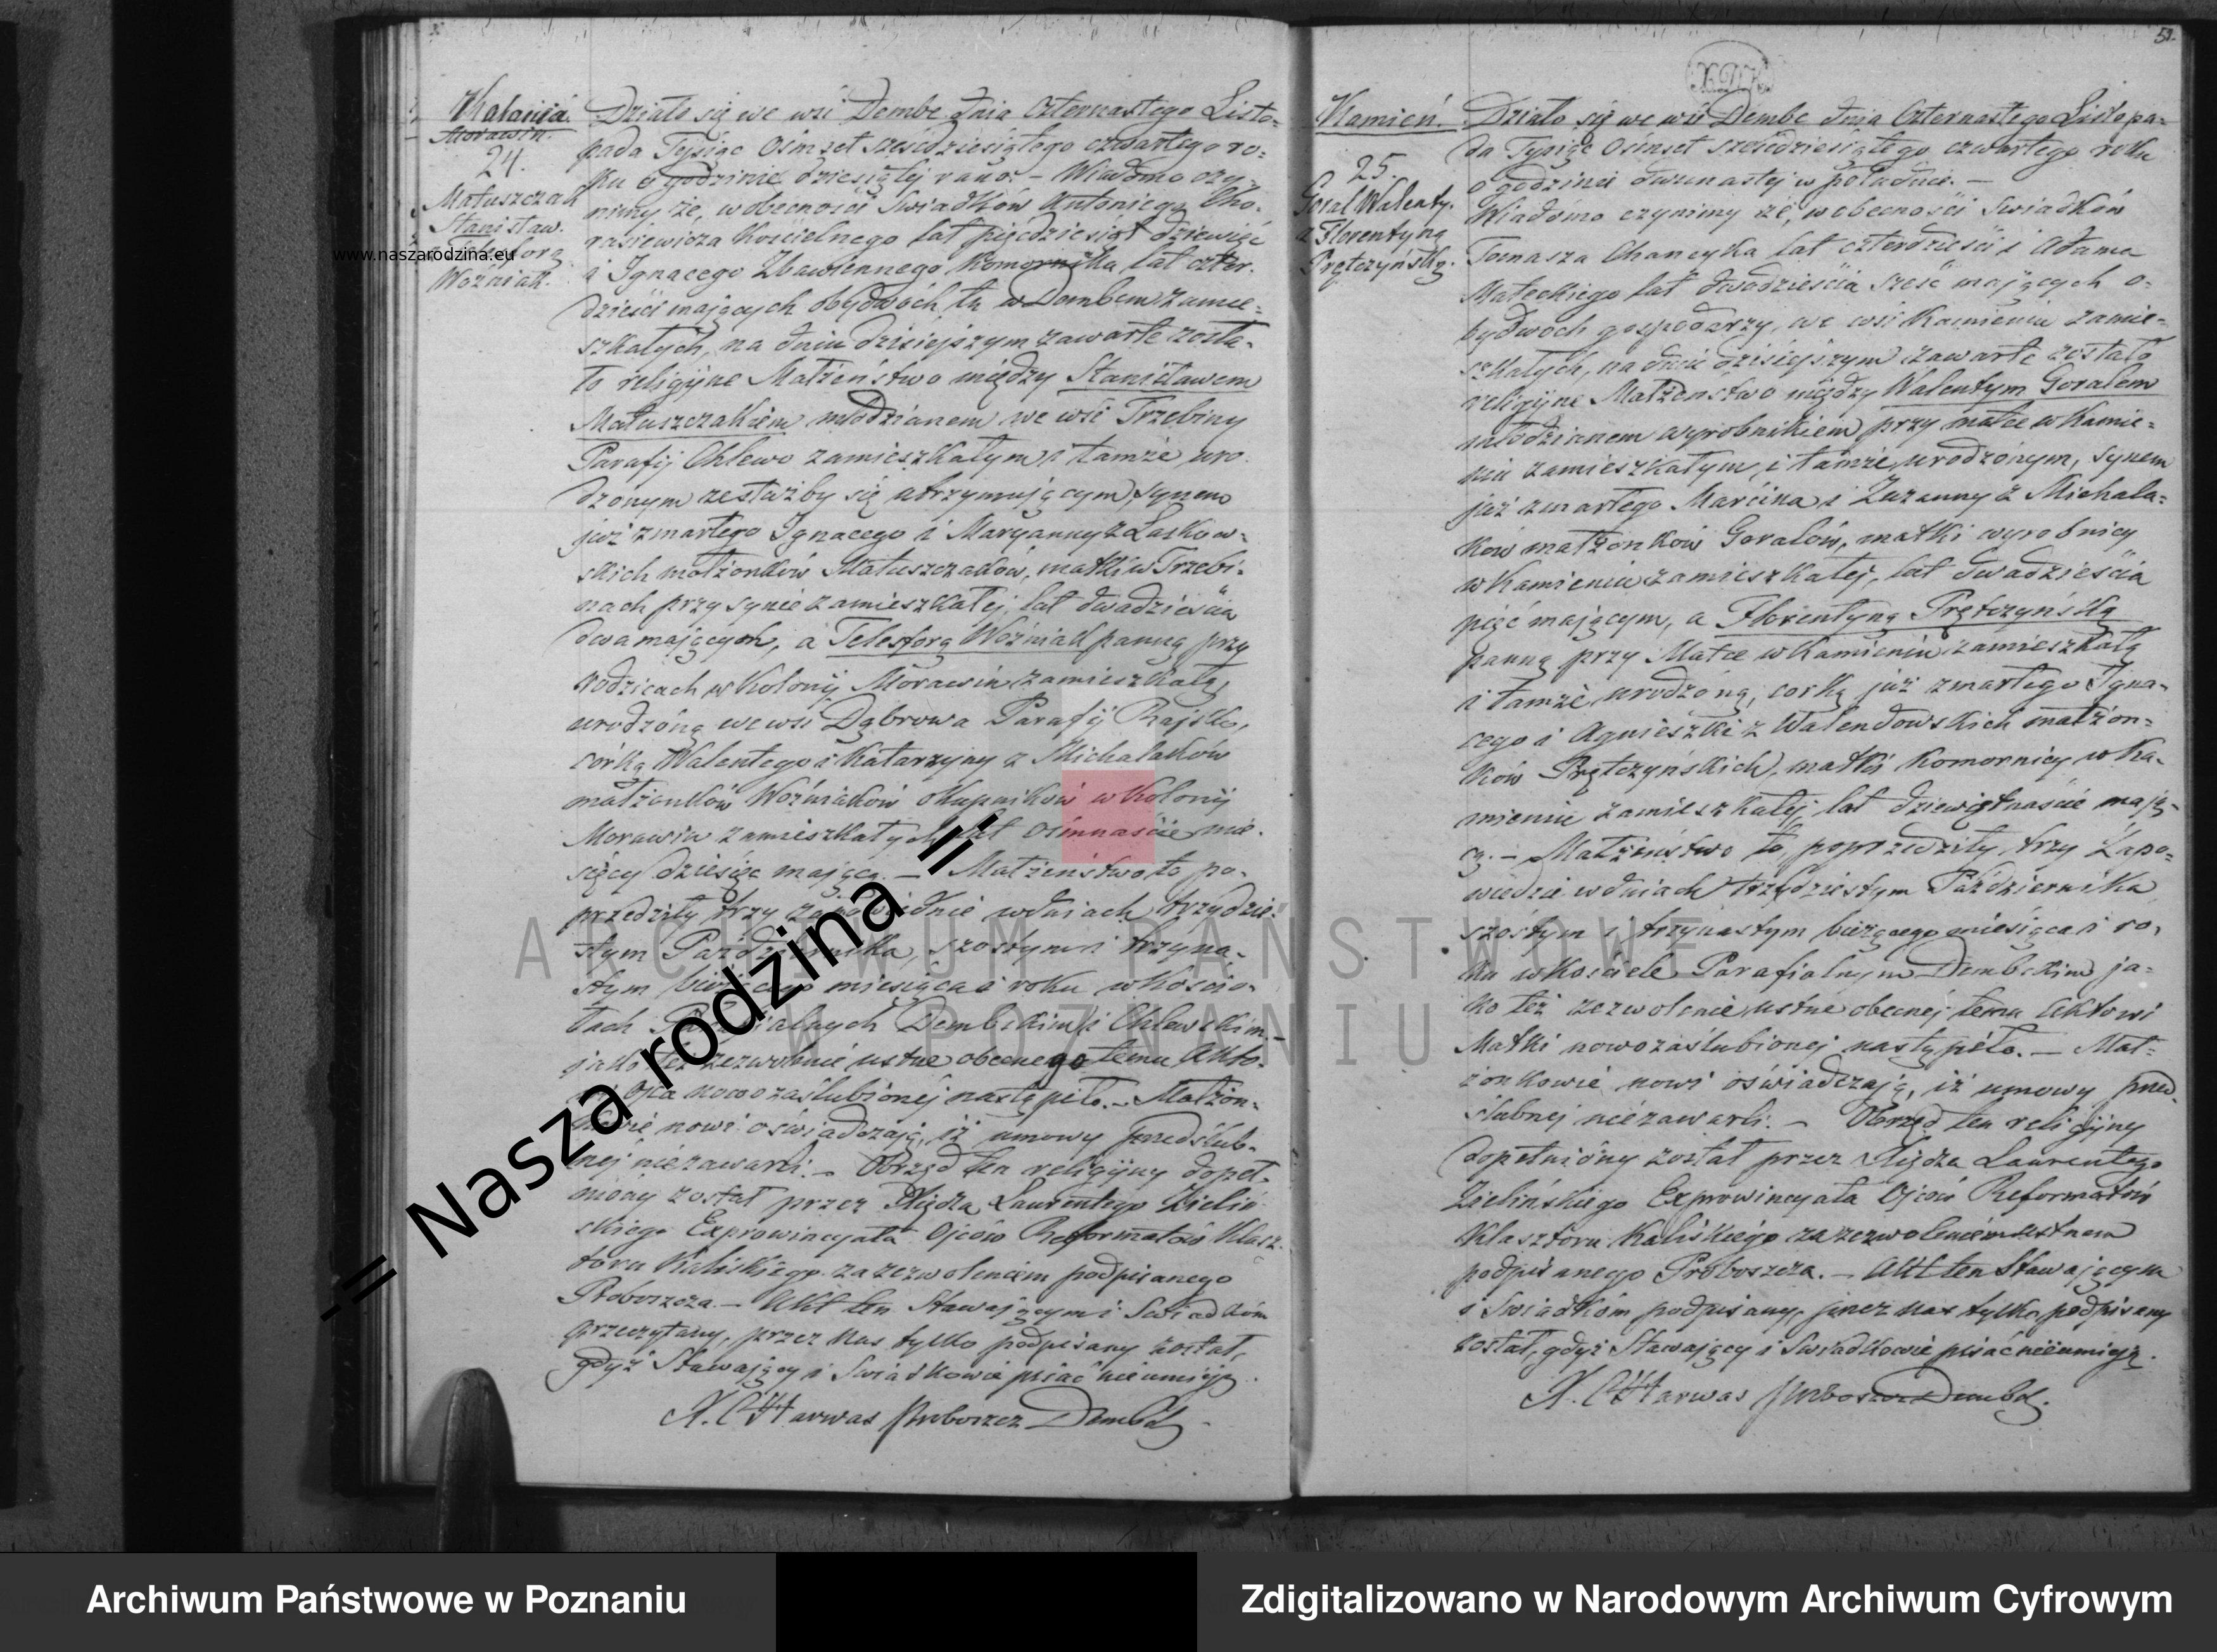 Kolonia
Morawin.
24.
Matuszczak
Stanisław.
a Telesfora
Woźniak.
www.naszarodzina.eu
Działo się we wsi Dembe dnia Czternastego Listo-
pada Tysiąc Ośmset sześćdziesiątego czwartego ro-
ku o godzinie dziesiątej rano. – Wiadomo czy-
nimy że, w obecności Świadków Antoniego
Kościelnego lat pięćdziesiąt dziewięć
i Ignacego Zbawiennego Komornika lat czter-
dzieści mających obydwóch tu w Dembem zamie-
szkałych, na dniu dzisiejszym zawarte zosta-
ło religijne Małżeństwo między Stanisławem
Matuszczakiem młodzianem we wsi Trzebiny
Parafij Chlewo zamieszkałym i tamże uro-
dzonym ze służby się utrzymującym, synem
już zmarłego Ignacego i Maryanny z Laskow-
skich małżonków Matuszczaków, matki w Trzebi-
nach przy synie zamieszkałej, lat dwadzieścia
dwa mającym, a Telesforą Woźniak panną przy
rodzicach w Kolonij Morawin zamieszkałą,
urodzoną we wsi Dąbrowa Parafij Rajsko,
córką Walentego i Katarzyny z Michalaków
małżonków Woźniaków okupników w Kolonij
Morawin zamieszkałych lat ośmnaście mie-
sięcy dziesięć mającą. – Małżeństwo to po-
przedziły trzy zapowiednie w dniach trzydzie-
stym Października, szóstym i trzyna-
stym bieżącego miesiąca i roku w Kościo-
łach Parafialnych Dembskim i Chlewskim,
jako też zezwolenie ustne obecnego temu Akto-
wi Ojca nowozaślubionej nastąpiło. – Małżon-
kowie nowi oświadczają, iż umowy przedślub-
nej niezawarli. – Obrzęd ten religijny dopeł-
niony został przez Księdza Laurentego Zieliń-
skiego Exprowincyała Ojców Reformatów Klasz-
toru Kaliskiego za zezwoleniem podpisanego
Proboszcza. – Akt ten Stawającymi i Świadkóm
przeczytany, przez nas tylko podpisany został,
gdyż Stawający i Świadkowie pisać nieumieją.
X. Harwas Proboszcz Dembsk
-= Nasza rodzina =-
51.
Kamień.
25.
Goral Walenty.
a Florentyna
Prętczyńską.
Działo się we wsi Dembe dnia Czternastego Listopa-
da Tysiąc Ośmset sześćdziesiątego czwartego roku
o godzinie dwunastej w południe. –
Wiadomo czynimy że, w obecności Świadków
Tomasza lat czterdzieści i Adama
Małeckiego lat dwadzieścia sześć mających o-
bydwóch gospodarzy, we wsi Kamieniu zamie-
szkałych, na dniu dzisiejszym zawarte zostało
religijne Małżeństwo między Walentym Goralem
młodzianem wyrobnikiem przy matce w Kamie-
niu zamieszkałym, i tamże urodzonym, synem
już zmarłego Marcina i Zuzanny z Michala-
ków małżonków Goralów, matki wyrobnicy
w Kamieniu zamieszkałej, lat dwadzieścia
pięć mającym, a Florentyną Prętczyńską
panną przy Matce w Kamieniu zamieszkałą
i tamże urodzoną, córką już zmarłego Igna-
cego i Agnieszki z Walendowskich małżon-
ków Prętczyńskich, matki Komornicy w Ka-
mieniu zamieszkałej, lat dziewiętnaście mają-
cą. – Małżeństwo to poprzedziły trzy Zapo-
wiedzie w dniach trzydziestym Października
szóstym i trzynastym bieżącego miesiąca i ro-
ku w Kościele Parafialnym Dembskim ja-
ko też zezwolenie ustne obecnej temu Aktowi
Matki nowozaślubionej nastąpiło. – Mał-
żonkowie nowi oświadczają, iż umowy przed
ślubnej niezawarli. – Obrzęd ten religijny
dopełniony został przez Księdza Laurentego
Zielińskiego Exprowincyała Ojców Reformatów
Klasztoru Kaliskiego za zezwoleniem ustnem
podpisanego Proboszcza. – Akt ten Stawającym
i Świadkóm podpisany, przez nas tylko podpisany
został, gdyż Stawający i Świadkowie pisać nieumieją.
X. Harwas Proboszcz Dembsk.
ARCHIWUM PAŃSTWOWE
W POZNANIU
Archiwum Państwowe w Poznaniu
Zdigitalizowano w Narodowym Archiwum Cyfrowym